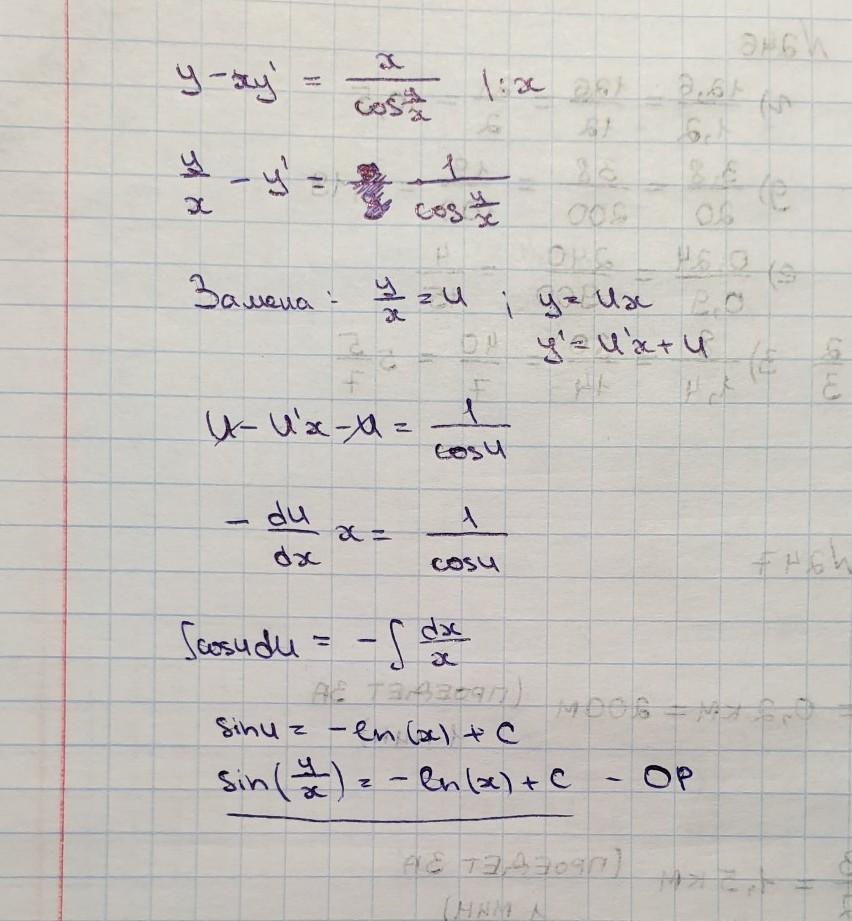 y - xy' = x / cos y/x |:x
y/x - y' = 1 / cos y/x
Замена: y/x = u ; y = ux
y' = u'x + u
u - u'x - u = 1 / cos u
- du/dx x = 1 / cos u
∫cos u du = - ∫ dx/x
sin u = - ln(x) + C
sin(y/x) = - ln(x) + C - ОР